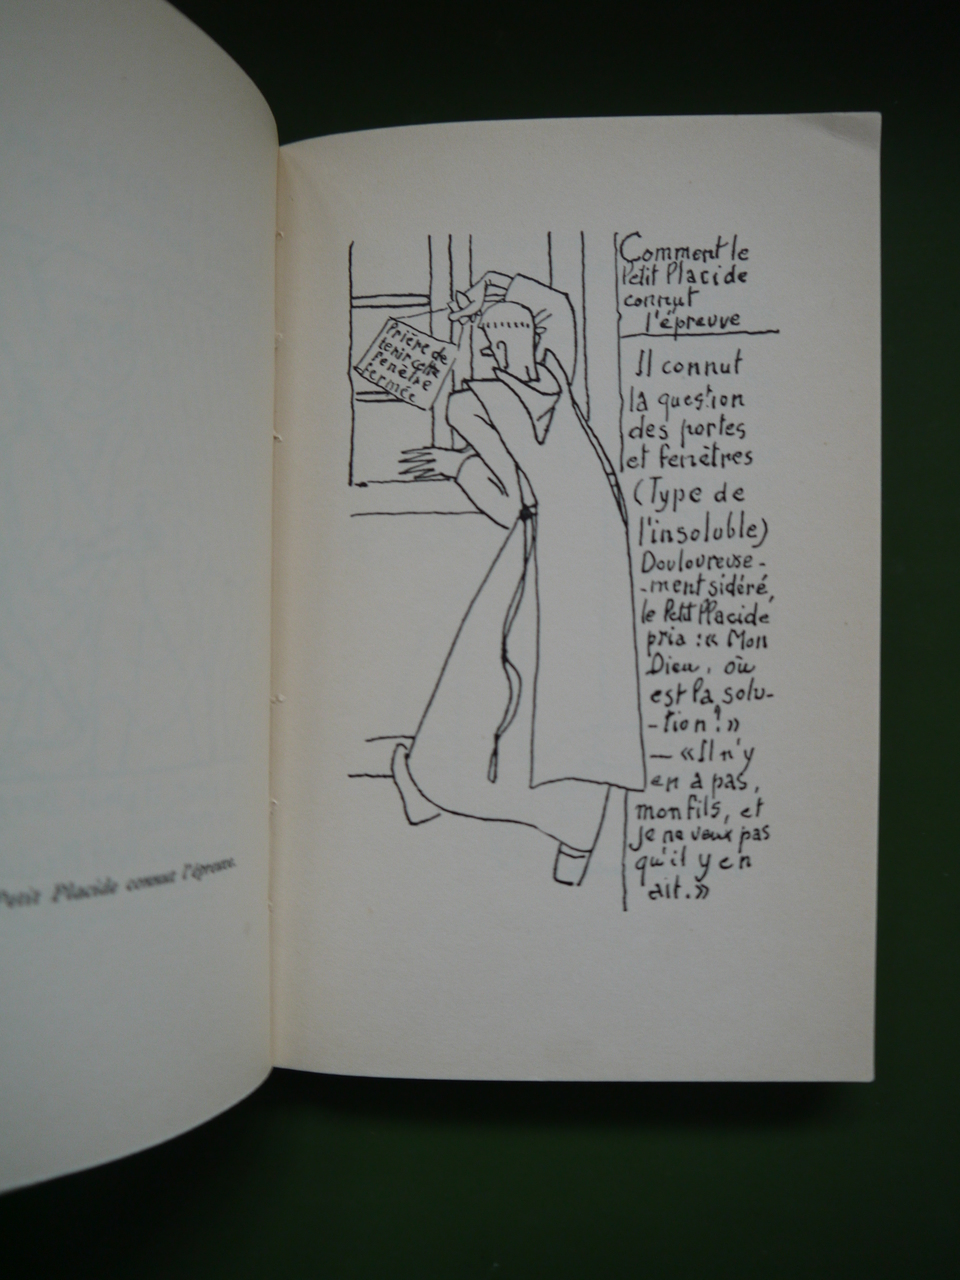 Petit Placide connut l'épreuve.
Prière de
tenir cette
fenêtre
fermée
Comment le
Petit Placide
connut
l'épreuve
Il connut
la question
des portes
et fenêtres
(Type de
l'insoluble)
Douloureuse-
-ment sidéré,
le Petit Placide
pria : « Mon
Dieu, où
est la solu-
-tion ? »
— « Il n'y
en a pas,
mon fils, et
je ne veux pas
qu'il y en
ait. »